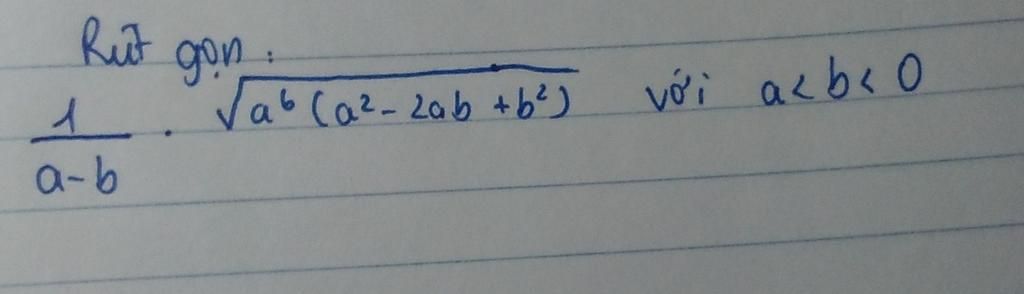 Rút gọn :
1/(a-b) . √(a⁶ (a² - 2ab + b²)) với a < b < 0